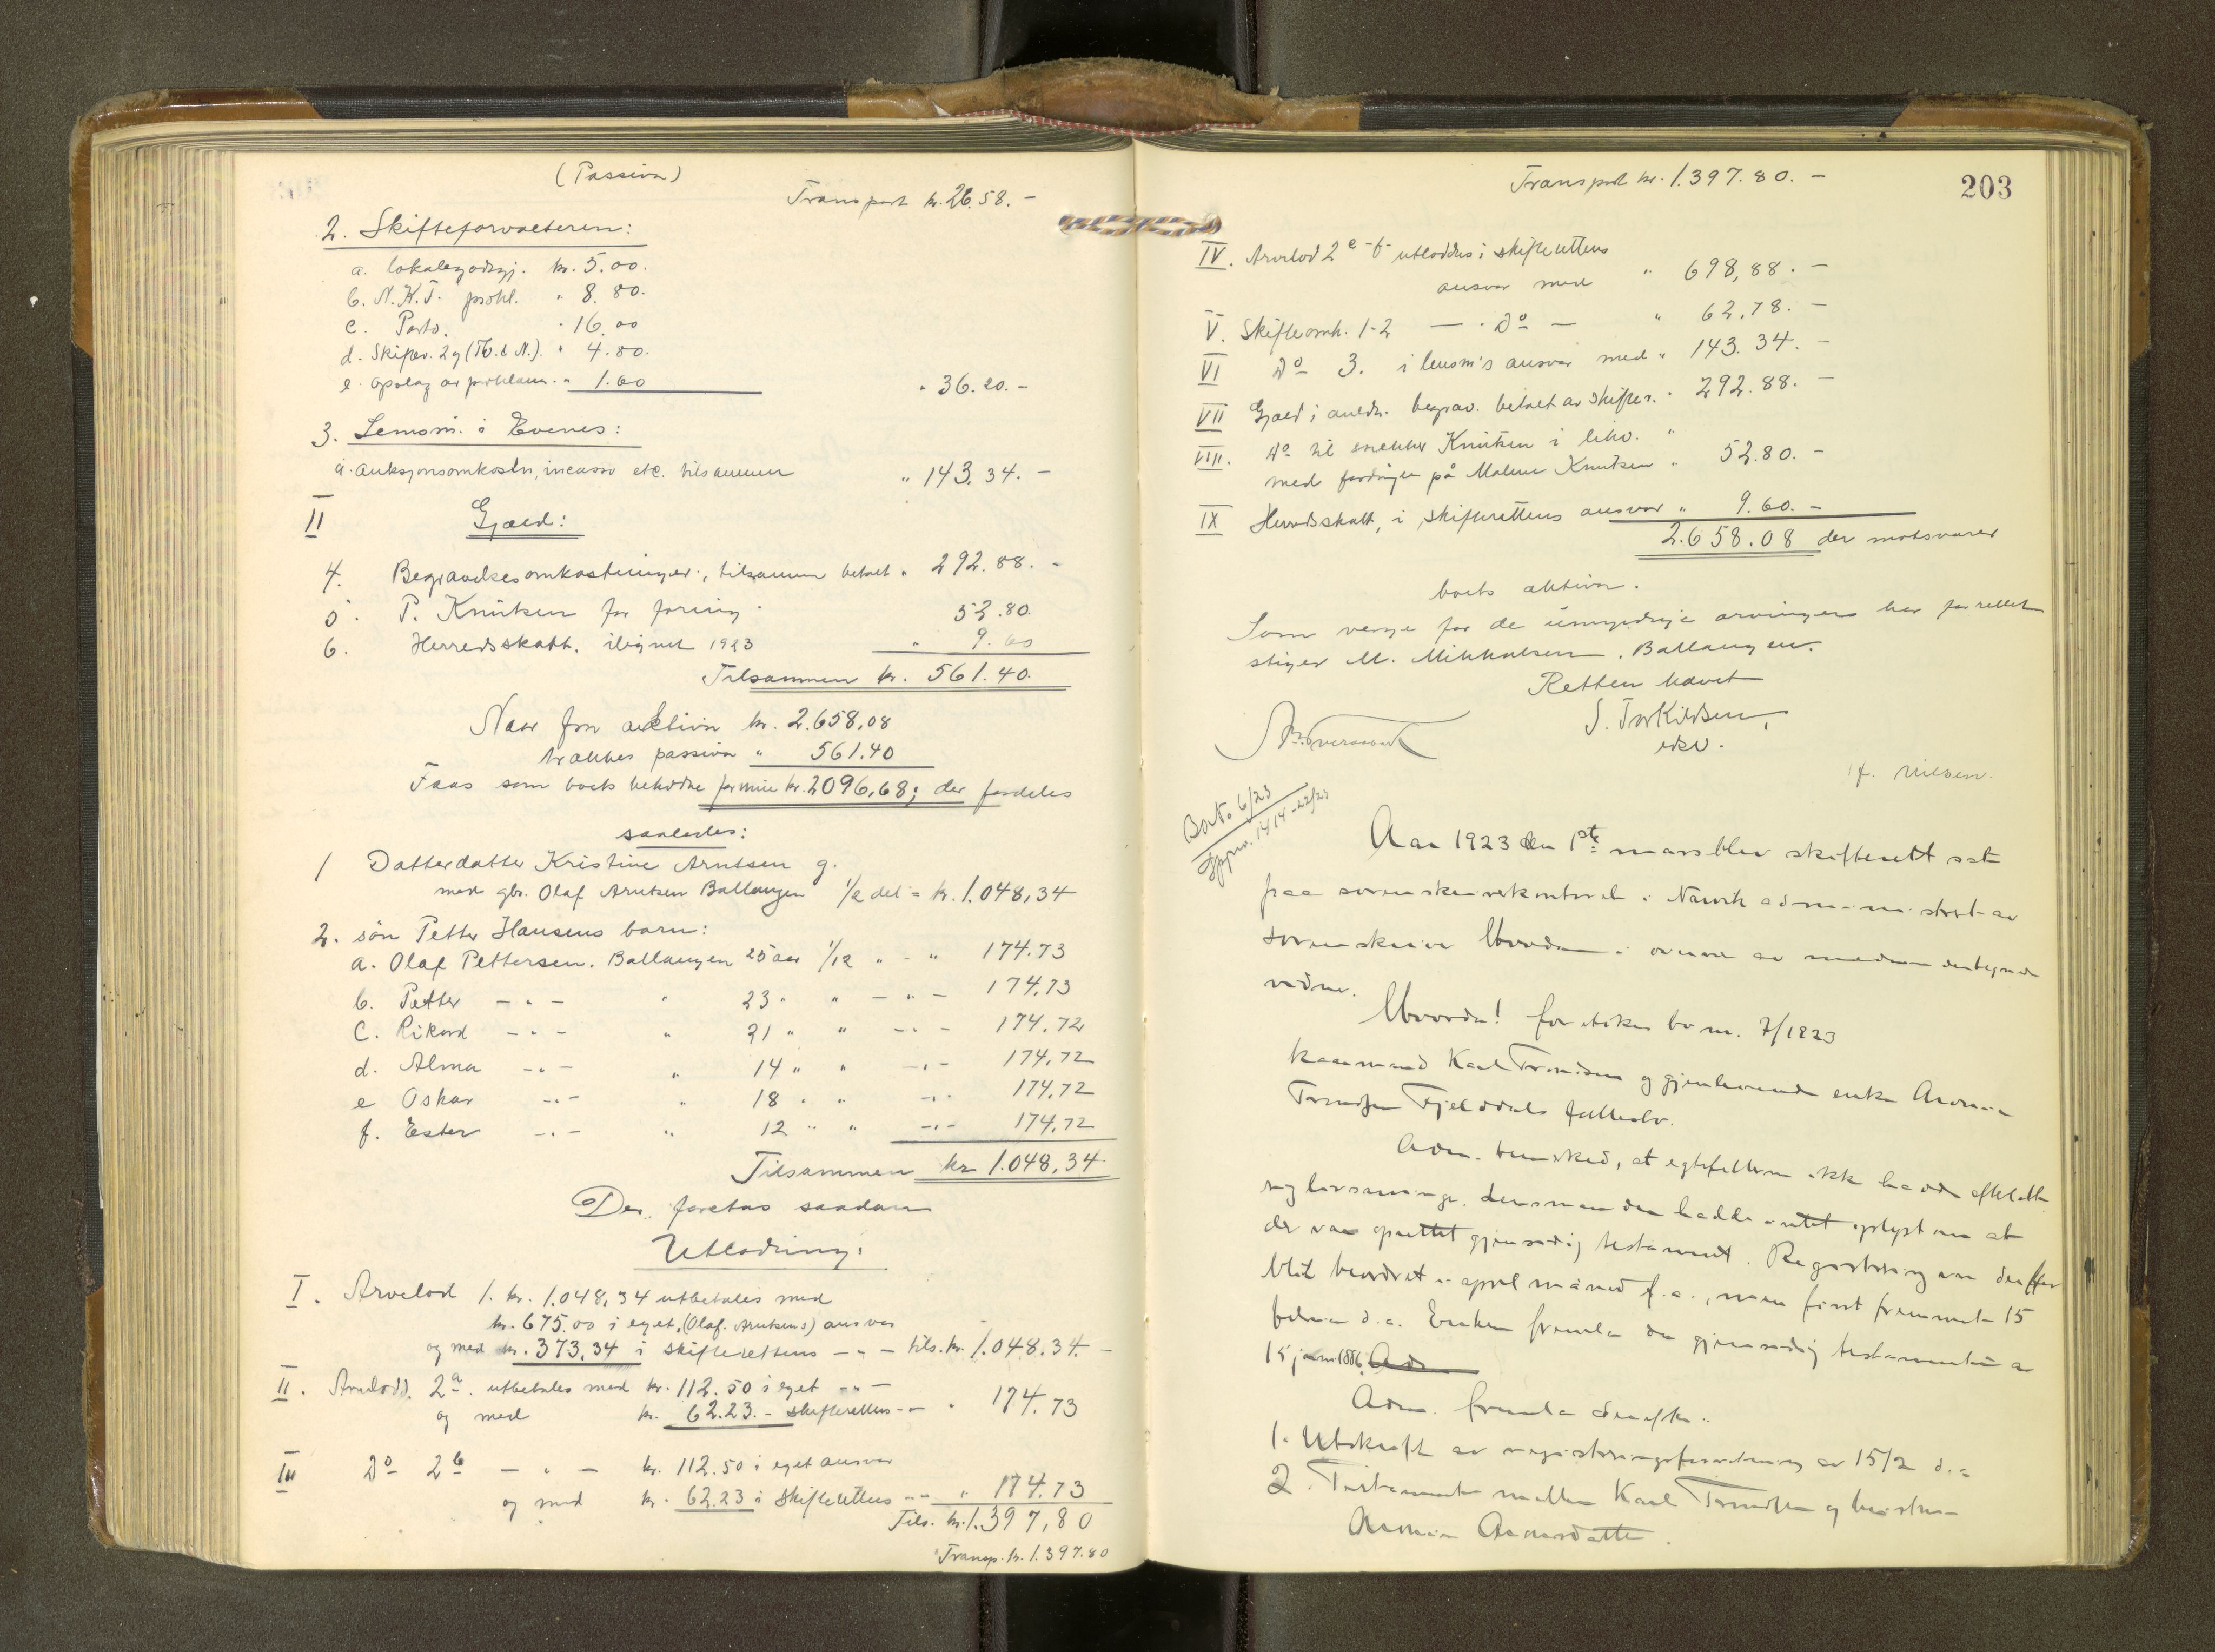 (Passiva)
Transport kr. 26.58. -
2. Skifteforvalteren:
a. lokalegodtgj. kr. 5.00.
b. N.K.T. prokl. " 8.80.
c. Porto. " 16.00
d. Skifter. 2 g (Tb. & N.). " 4.80.
e. Opslag av proklam. " 1.60 " 36.20. -
3. Lensm. i Evenes:
a. auksjonsomkostn, incasso etc. tilsammen " 143.34. -
II Gjæld:
4. Begravelsesomkostninger, tilsammen betalt " 292.88. -
5. P. Knutsen for foring 52.80.
6. Herredsskatt. ilignet 1923 " 9.60
Tilsammen kr. 561.40.
Naar fra aktiva kr. 2.658,08
trækkes passiva " 561.40
Faas som boets beholdne formue kr. 2096,68; der fordeles
saaledes:
1 Datterdatter Kristine Arntsen g.
med gbr. Olaf Arntsen Ballangen 1/2 del = kr. 1.048,34
2. søn Petter Hansens barn:
a. Olaf Pettersen. Ballangen 25 aar 1/12 " - " 174.73
b. Petter - " - " 23 " " - " - 174.73
c. Rikard - " - " 21 " " - " - 174.72
d. Alma - " - " 14 " " - " - 174.72
e Oskar - " - " 18 " " - " - 174.72
f. Ester - " - " 12 " " - " - 174.72
Tilsammen kr 1.048,34
Der foretas saadan
Utlodning:
I. Arvelod 1. kr. 1.048,34 utbetales med
kr. 675.00 i eget, (Olaf. Arntsens) ansvar
og med kr. 373,34 i skifterettens - " - tils. kr. 1.048.34. -
II. Arvelodd. 2a. utbetales med kr. 112.50 i eget - " -
og med kr. 62.23. - skifterettens - " - " 174.73
III Do 2b - " - kr. 112.50 i eget ansvar
og med kr. 62.23 i skifterettens - " - " 174.73
Tils. kr. 1.397,80
Transp. kr. 1.397.80
Transport kr. 1.397.80. -
203
IV. Arvelod 2 c-f utloddes i skifterettens
ansvar med " 698,88. -
V. Skifteomk. 1-2 - " Do - " 62.78. -
VI Do 3. i lensm's ansvar med " 143.34. -
VII Gjæld i anledn. begrav. betalt av skifter. " 292.88. -
VIII. Do til snekker Knutsen i likv. "
med fordringen på Malene Knutsen " 52.80. -
IX Herredsskatt, i skifterettens ansvar " 9.60. -
2.658.08 der motsvarer
boets aktiva.
Som verge for de umyndige arvinger har forrettet
stiger M. Mikkalsen. Ballangen.
Retten hævet
S. Torkildsen,
edsv.
H. Nilsen.
Bo nr. 6/23
Aar 1923 den 1ste mars blev skifterett sat
paa sorenskriverkontoret i Narvik administrert av
sorenskriver i overvær av nedenundertegnede
vidner.
foretokes bo nr. 7/1923
kaarmand Karl Trondsen og gjenlevende enke
Trondsen Fjelddals fællesbo.
Adm. bemerked, at egtefællerne ikke hadde efterlatt
sig livsarvinger. Lensmanden hadde intet oplyst om at
der var oprettet gjensidig testament. Registrering var derfor
blit beordret i april måned f.a., men først fremmet 15
februar d.a. Enken fremla da gjensidig testamente av
15 1886.
Adm. fremla derefter:
1. Utskrift av registreringsforretning av 15/2 d.a
2. Testamente mellem Karl Trondsen og hustru